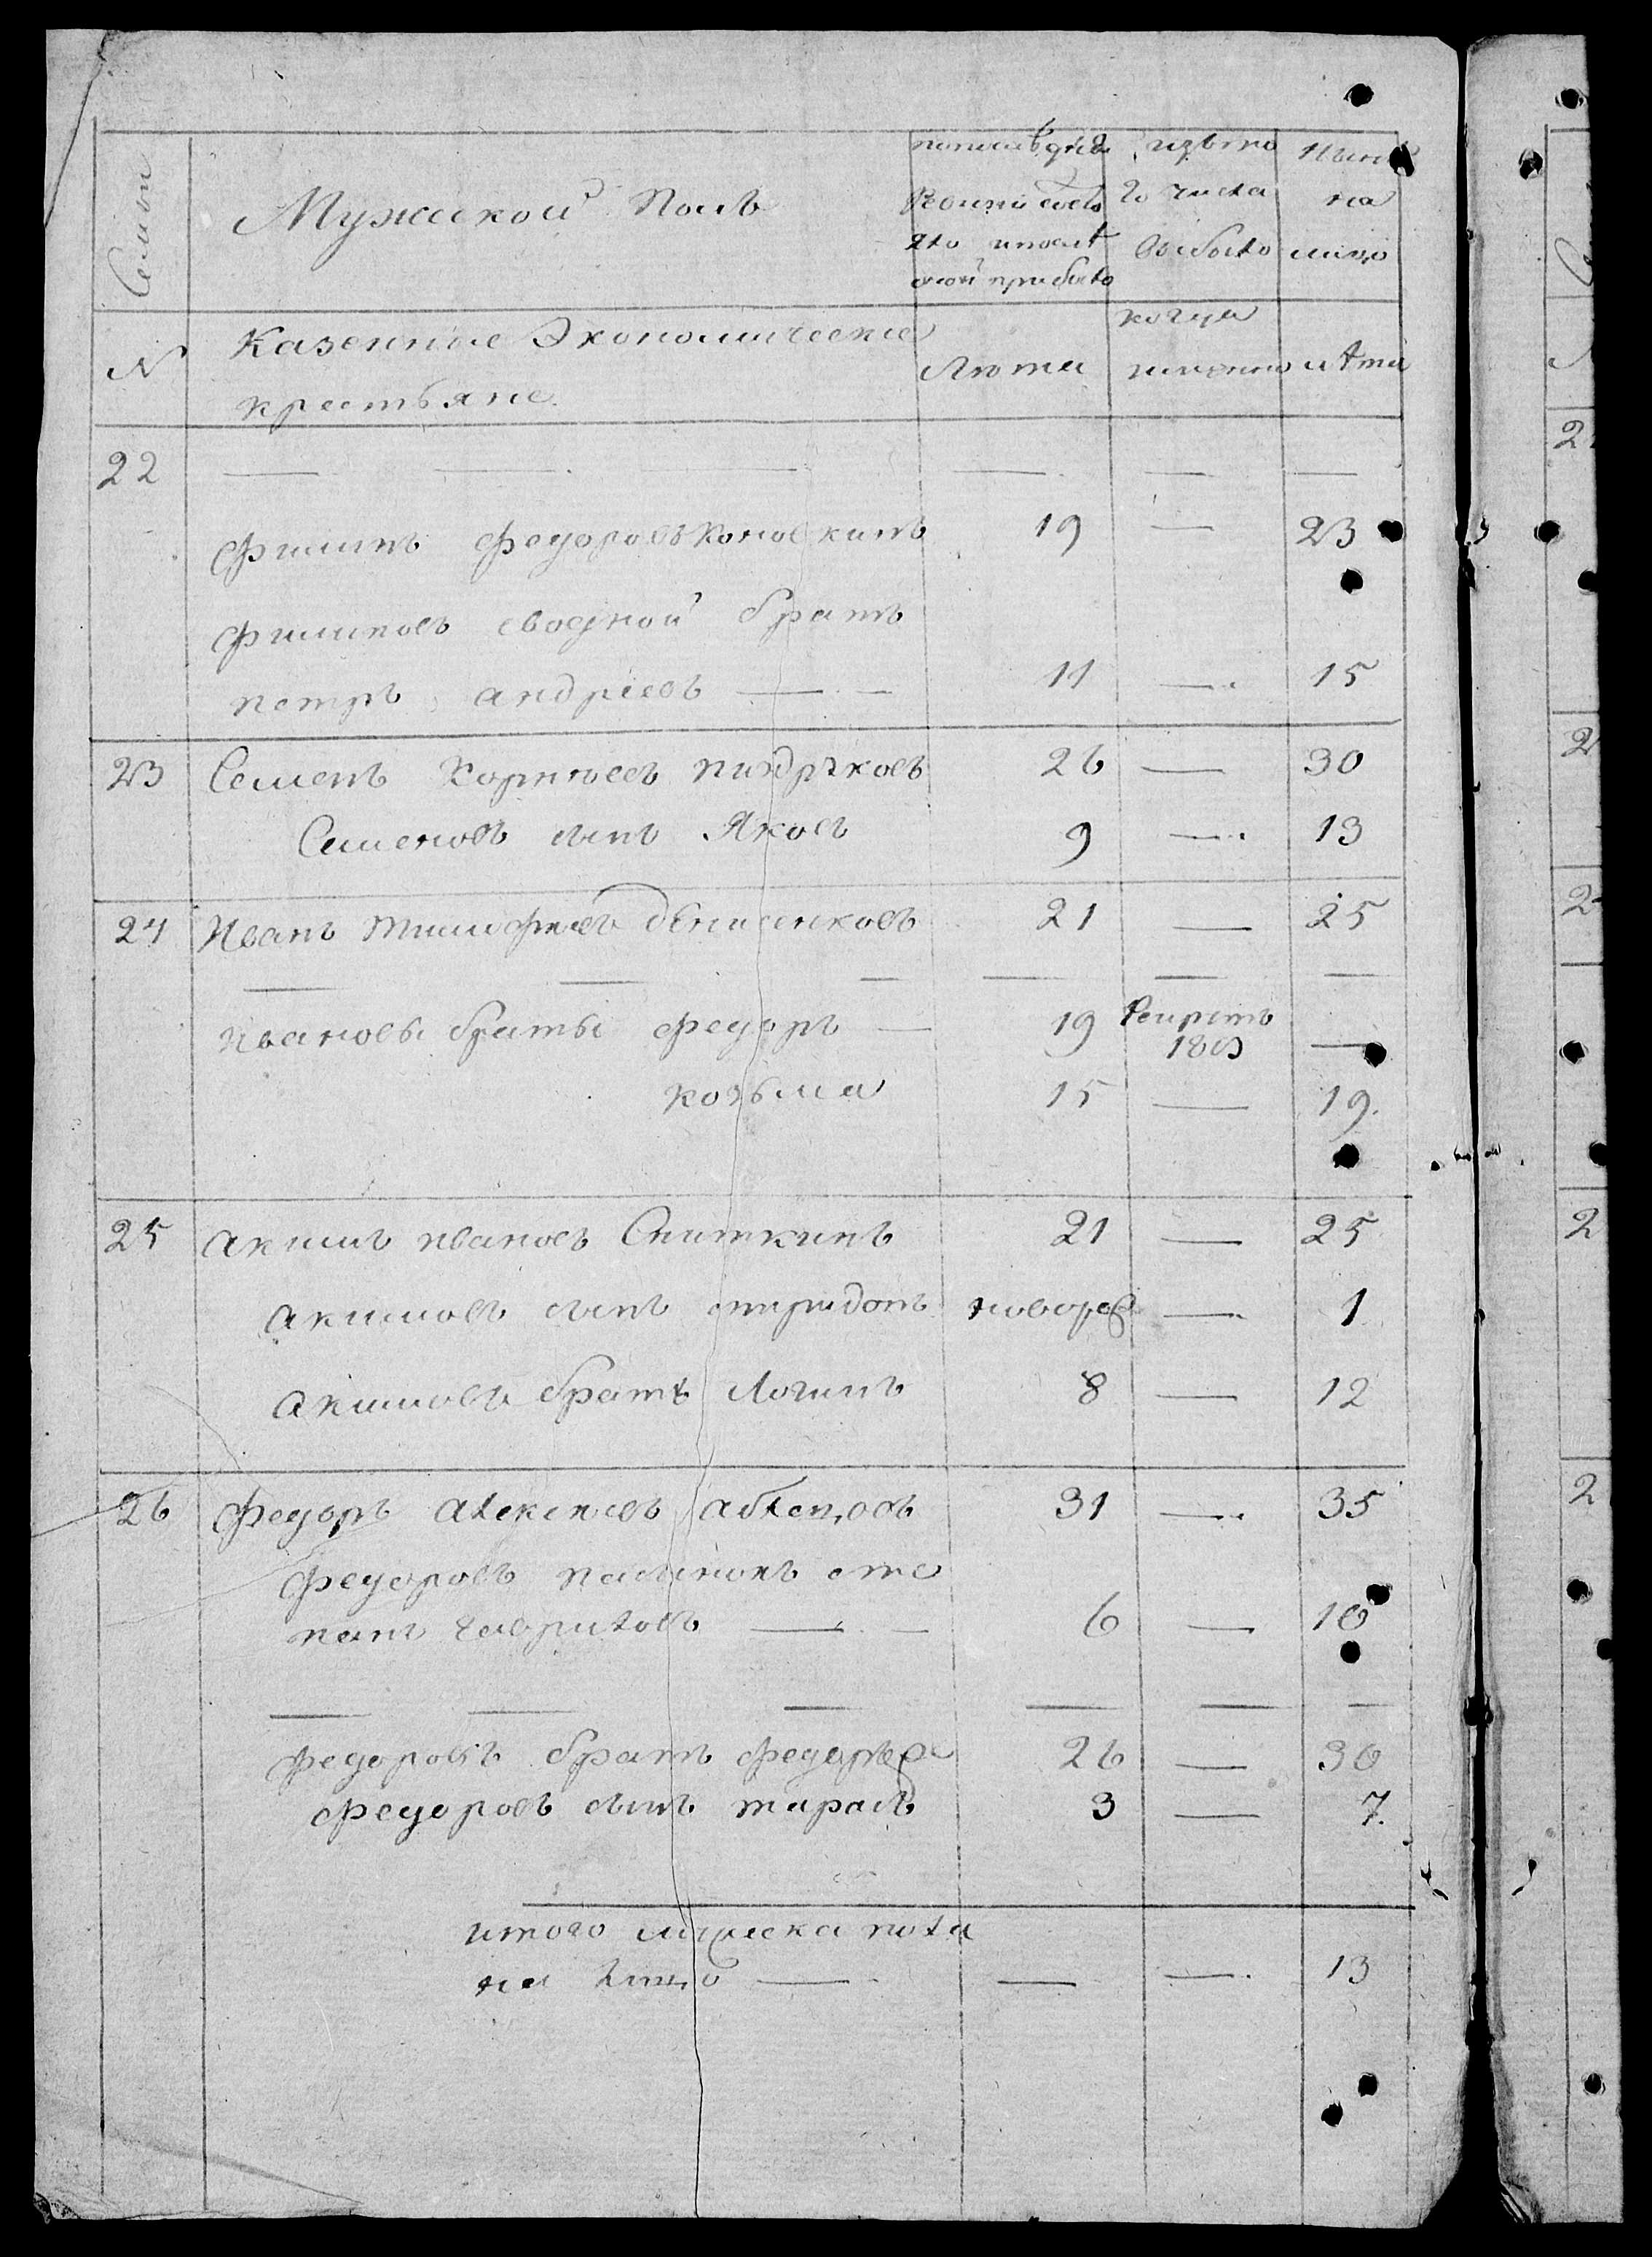 Семьи
Мужеской Полъ
по последней
Ревизіи состо
яло и после
оной прибыло
изъ то
го числа
выбыло
Ныне
на
лицо
N
Казенные Экономические
крестьяне
Лета
когда
именно
лѣта
22 — — — — — —
Филипъ Федоровъ Коновкинъ 19 — 23
Филиповъ сводной братъ
Петръ андреевъ — — 11 — 15
23 Семенъ Корнѣевъ 26 — 30
Семеновъ сынъ Яковъ 9 — 13
24 Иванъ Тимофеевъ Денисенковъ 21 — 25
— — — — — —
Ивановы браты Федоръ — 19 —
козьма 15 — 19.
25 акимъ Ивановъ Сниткинъ 21 — 25
акимовъ сынъ спиридонъ новорож — 1
акимовъ братъ Логинъ 8 — 12
26 Федоръ алексѣевъ 31 — 35
Федоровъ пасынокъ сте
панъ гавриловъ — — 6 — 10
— — — — — —
Федоровъ братъ Федоръ же 26 — 30
Федоровъ сынъ тарасъ 3 — 7.
итого мужеска пола
на лицо — — — 13
2
2
2
2
2